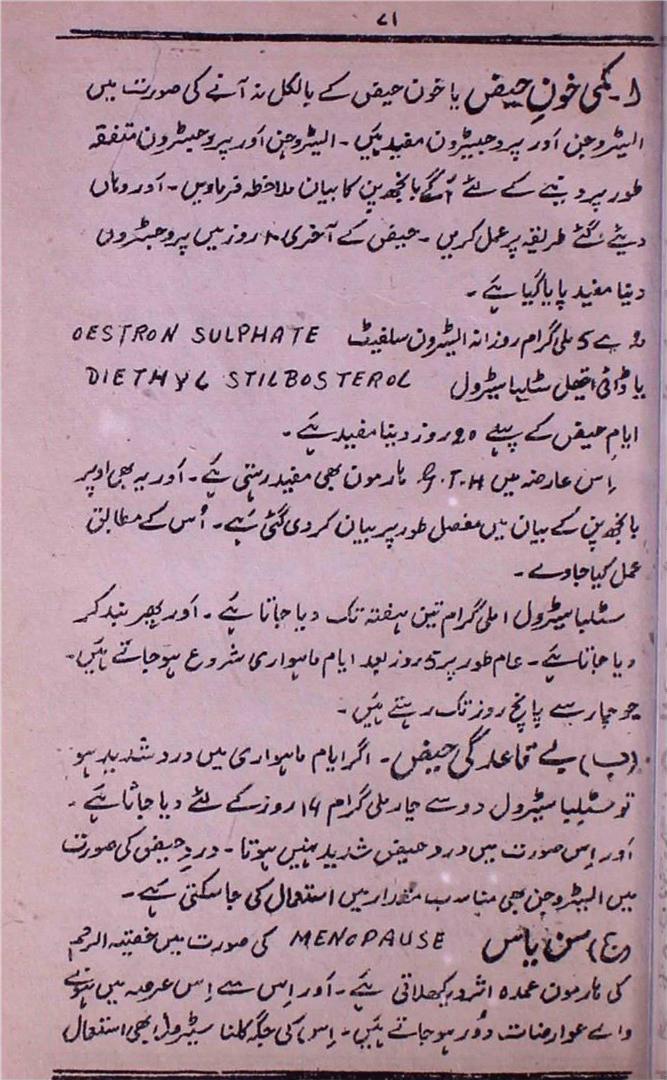 ۷۱
۱۔ کمی خونِ حیض یا خون حیض کے بالکل نہ آنے کی صورت میں
الیٹروجن اَور پروجیسٹرون مفید ہَیں۔ الیٹروجن اَور پروجیسٹرون متفقہ
طور پر دینے کے لئے آگے بانجھ پن کا بیان ملاحظہ فرماویں۔ اَور وہاں
دیئے گئے طریقہ پر عمل کریں۔ حیض کے آخری ۱۰ روز میں پروجیسٹرون
دینا مفید پایا گیا ہَے۔
۲ سے 5 ملی گرام روزانہ الیٹرون سلفیٹ OESTRON SULPHATE
یا ڈائی اتھل سٹلبا سیٹرول DIETHYL STILBOSTEROL
ایام حیض کے پہلے ۲۰ روز دینا مفید ہَے۔
اِس عارضہ میں G.T.H ہارمون بھی مفید رہتی ہَے۔ اَور یہ بھی اوپر
بانجھ پن کے بیان میں مفصل طور پر بیان کر دی گئی ہَے۔ اُس کے مطابق
عمل کیا جاوے۔
سٹلبا سیٹرول ۱ ملی گرام تین ہفتہ تک دیا جاتا ہَے۔ اَور پھر بند کر
دیا جاتا ہَے۔ عام طور پر 5 روز بعد ایام ماہواری شروع ہو جاتے ہَیں۔
جو چار سے پانچ روز تک رہتے ہَیں۔
(ب) بے قاعدگی حیض۔ اگر ایام ماہواری میں درد شدید ہو
تو سٹلبا سیٹرول دو سے چار ملی گرام ۱۴ روز کے لئے دیا جاتا ہَے۔
اَور اِس صورت میں درد حیض شدید نہیں ہوتا۔ دردِ حیض کی صورت
میں الیٹروجن بھی مناسب مقدار میں استعمال کی جا سکتی ہَے۔
(ج) سن یاس MENOPAUSE کی صورت میں خصیتہ الرحم
کی ہارمون عمدہ اثر دکھلاتی ہَے۔ اَور اِس سے اِس عرصہ میں ہونے
والے عوارضات دُور ہو جاتے ہَیں۔ اِس کی جگہ سیٹرول بھی استعمال